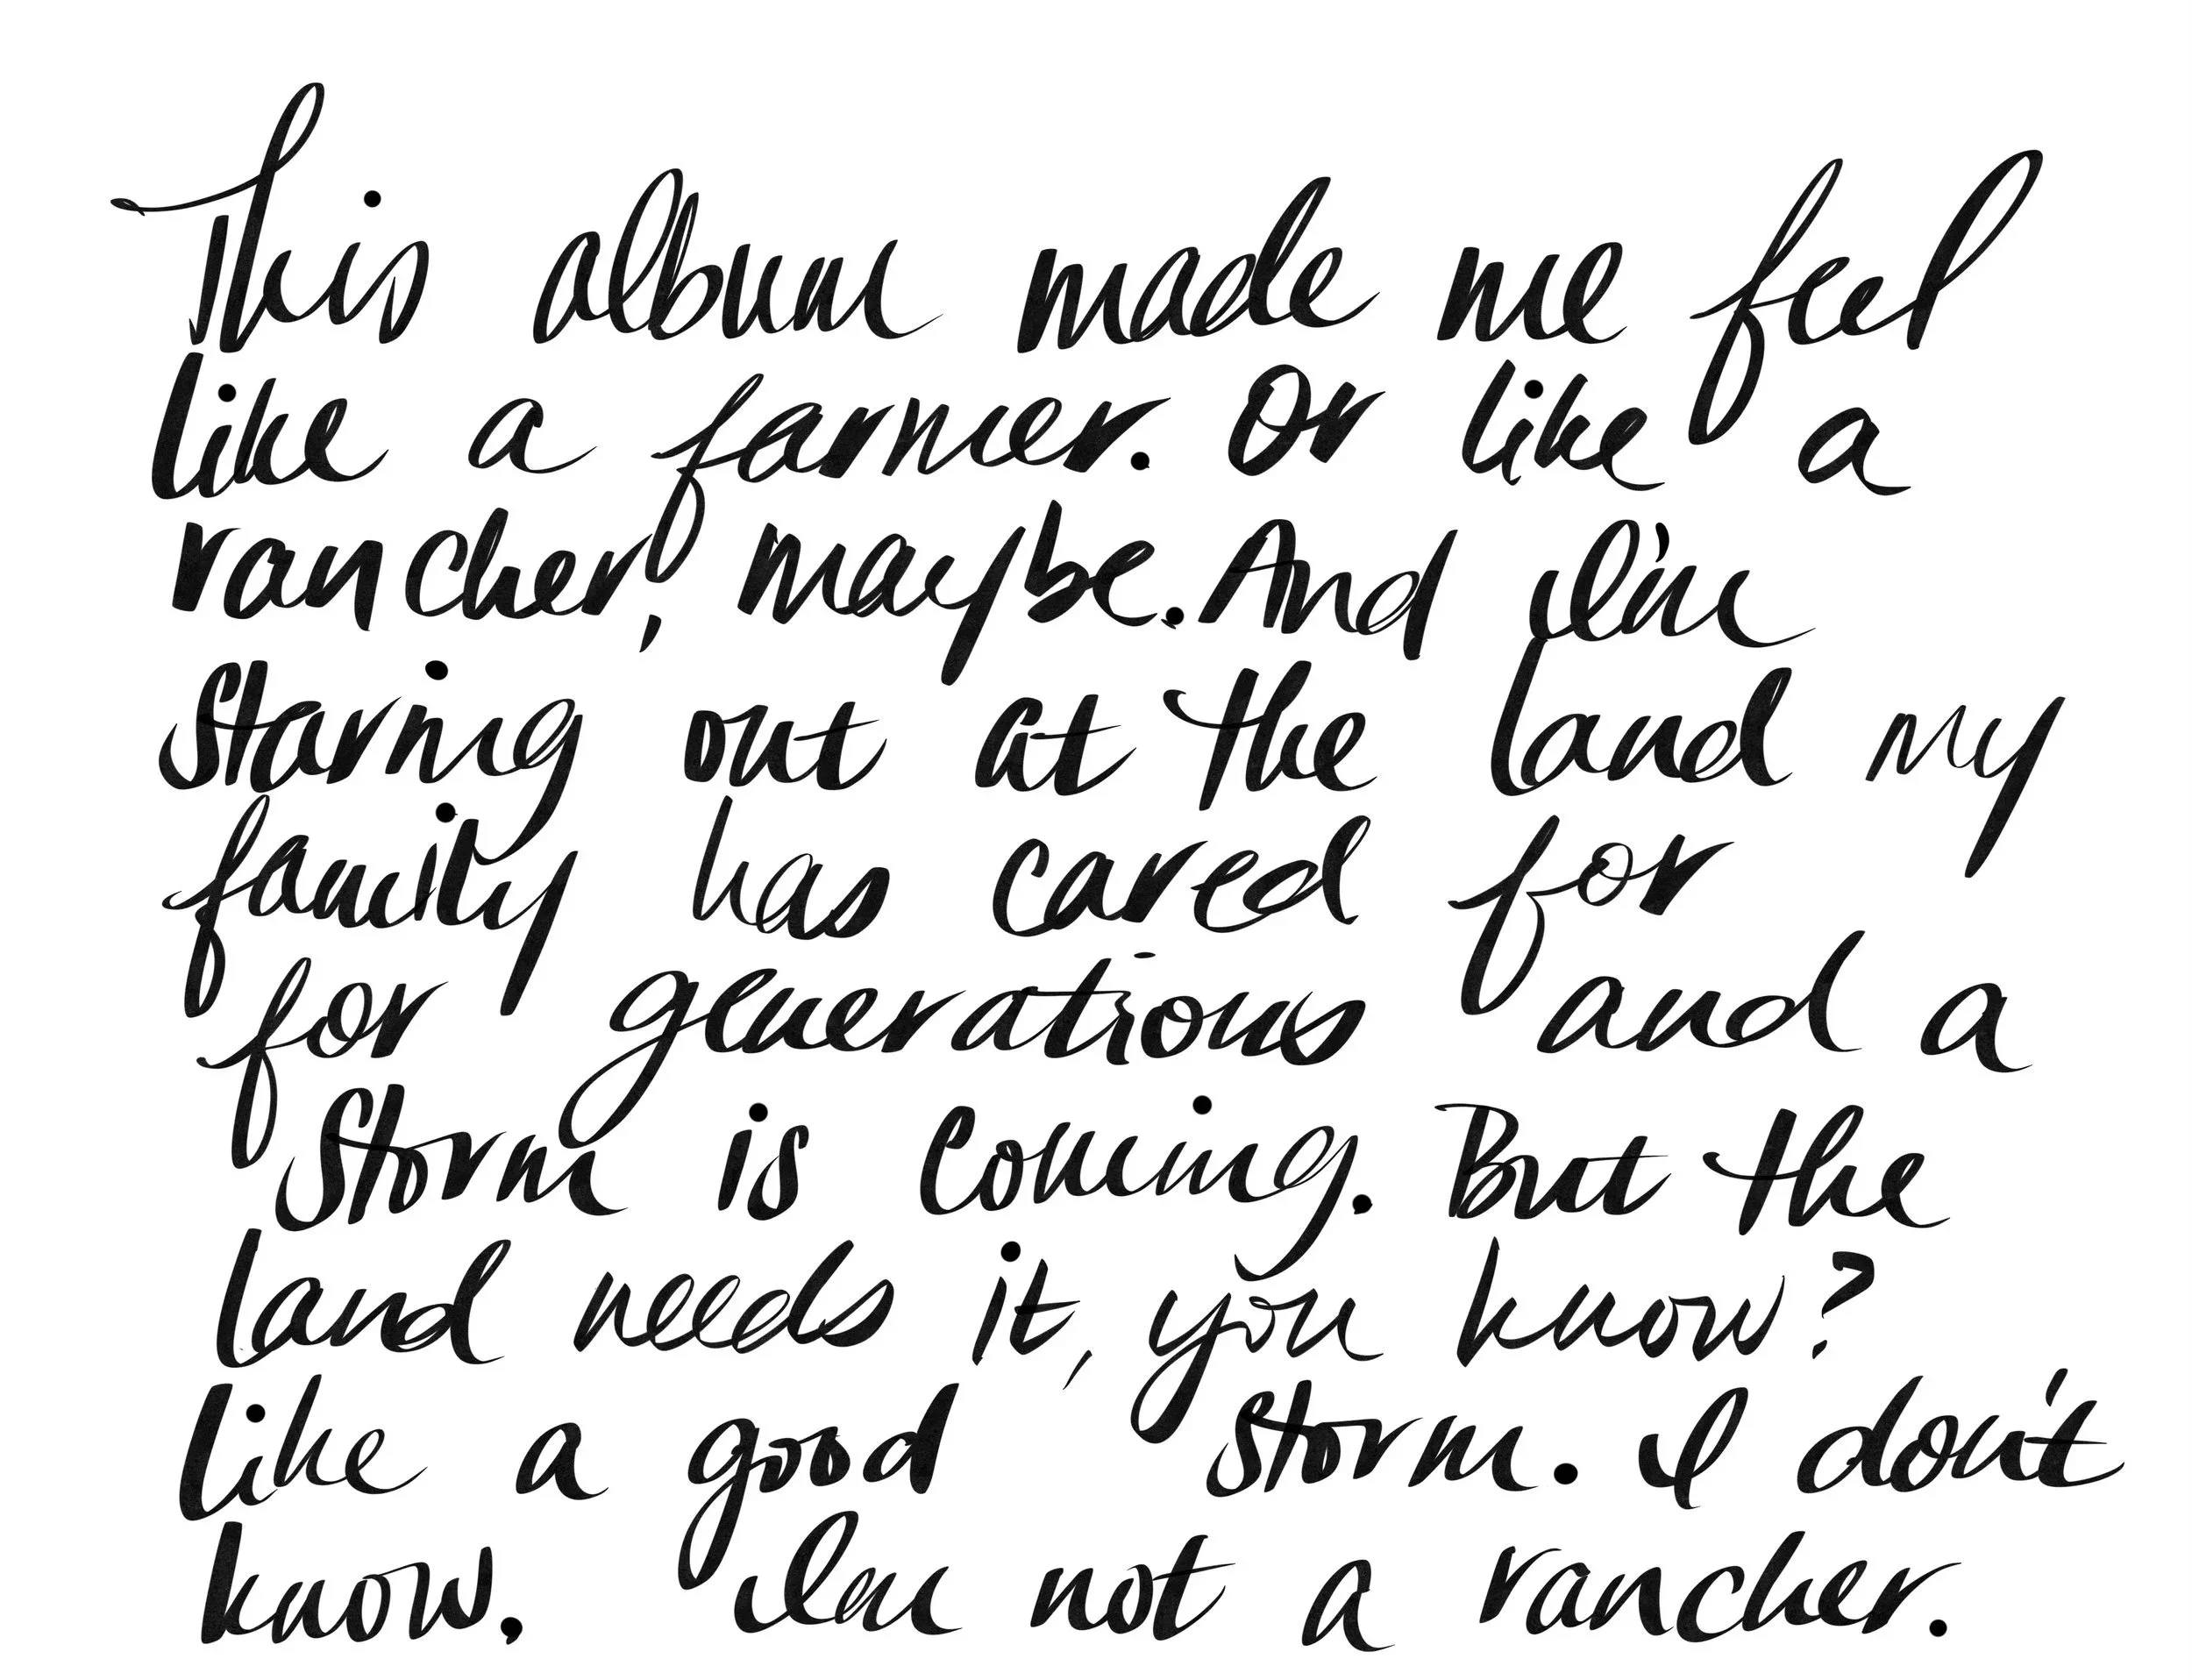 This album made me feel
like a farmer. Or like a
rancher, maybe. And I'm
staring out at the land my
family has cared for
for generations and a
storm is coming. But the
land needs it, you know?
like a good storm. I don't
know. Im not a rancher.